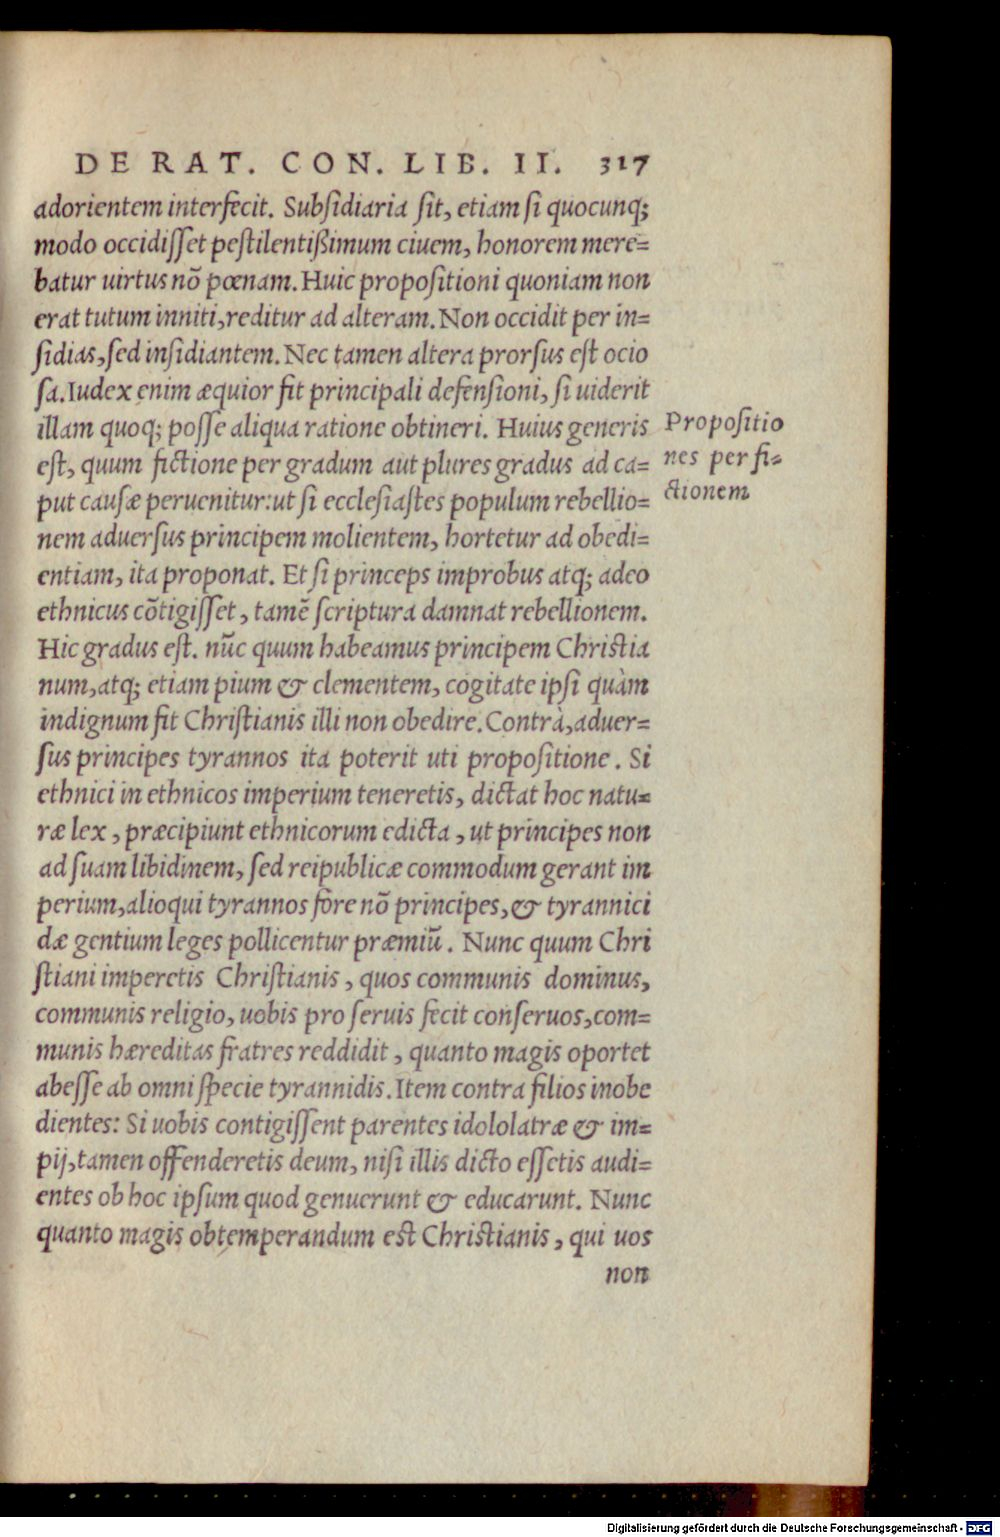 DE RAT. CON. LIB. II. 317
adorientem interfecit. Subſidiaria ſit, etiam ſi quocunq;
modo occidiſſet peſtilentißimum ciuem, honorem mere=
batur uirtus nõ pœnam. Huic propoſitioni quoniam non
erat tutum inniti, reditur ad alteram. Non occidit per in=
ſidias, ſed inſidiantem. Nec tamen altera prorſus eſt ocio
ſa. Iudex enim æquior fit principali defenſioni, ſi uiderit
illam quoq; poſſe aliqua ratione obtineri. Huius generis
eſt, quum fictione per gradum aut plures gradus ad ca=
put cauſæ peruenitur: ut ſi eccleſiaſtes populum rebellio=
nem aduerſus principem molientem, hortetur ad obedi=
entiam, ita proponat. Et ſi princeps improbus atq; adeo
ethnicus cõtigiſſet, tamẽ ſcriptura damnat rebellionem.
Hic gradus eſt. nũc quum habeamus principem Chriſtia
num, atq; etiam pium & clementem, cogitate ipſi quàm
indignum ſit Chriſtianis illi non obedire. Contrà, aduer=
ſus principes tyrannos ita poterit uti propoſitione. Si
ethnici in ethnicos imperium teneretis, dictat hoc natu=
ræ lex, præcipiunt ethnicorum edicta, ut principes non
ad ſuam libidinem, ſed reipublicæ commodum gerant im
perium, alioqui tyrannos fore nõ principes, & tyrannici
dæ gentium leges pollicentur præmiũ. Nunc quum Chri
ſtiani imperetis Chriſtianis, quos communis dominus,
communis religio, uobis pro ſeruis fecit conſeruos, com=
munis hæreditas fratres reddidit, quanto magis oportet
abeſſe ab omni ſpecie tyrannidis. Item contra filios inobe
dientes: Si uobis contigiſſent parentes idololatræ & im=
pij, tamen offenderetis deum, niſi illis dicto eſſetis audi=
entes ob hoc ipſum quod genuerunt & educarunt. Nunc
quanto magis obtemperandum eſt Chriſtianis, qui uos
non
Propoſitio
nes per fi=
ctionem
Digitalisierung gefördert durch die Deutsche Forschungsgemeinschaft - DFG